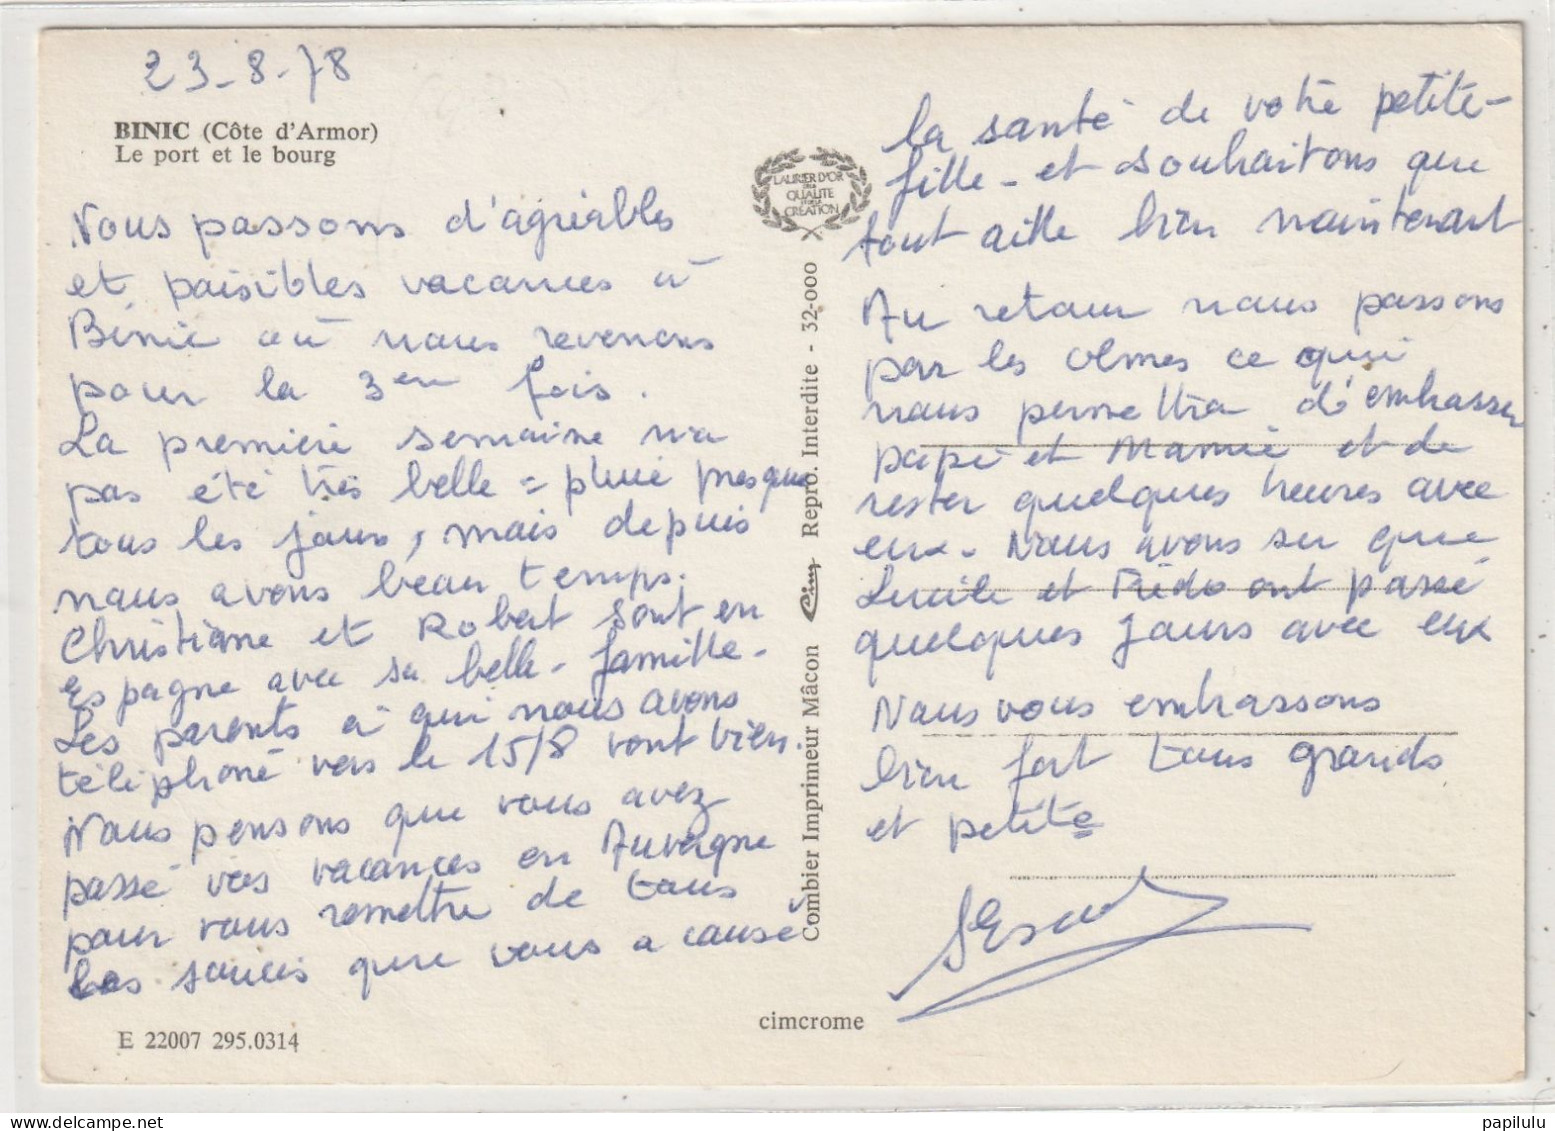 23-8-78
BINIC (Côte d'Armor)
Le port et le bourg
Nous passons d'agréables
et paisibles vacances à
Binic où nous revenons
pour la 3em fois.
La première semaine n'a
pas été très belle = pluie presque
tous les jours, mais depuis
nous avons beau temps.
Christiane et Robert sont en
Espagne avec sa belle-famille-
Les parents à qui nous avons
téléphoné vers le 15/8 vont bien.
Nous pensons que vous avez
passé vos vacances en Auvergne
pour vous remettre de tous
les soucis que vous a causé
LAURIER D'OR
DE LA
QUALITE
CREATION
Combier Imprimeur Mâcon Cim Repro. Interdite - 32-000
la santé de votre petite-
fille - et souhaitons que
tout aille bien maintenant
Au retour nous passons
par les Olmes ce qui
nous permettra d'embrasser
papi et Mamie et de
rester quelques heures avec
eux. Nous avons su que
Lucile et Frédo ont passé
quelques jours avec eux
Nous vous embrassons
bien fort tous grands
et petits
cimcrome
E 22007 295.0314
papilulu